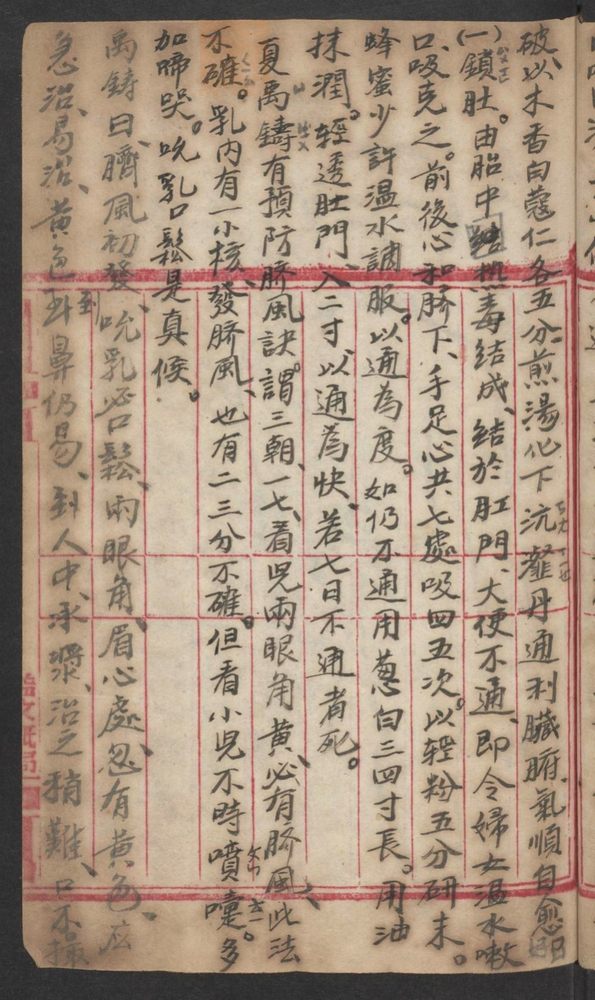 破、以木香白蔻仁各五分、煎湯化下沆瀣丹通利臟腑、氣順自愈
(一)鎖肚。由胎中熱毒結成、結於肛門、大便不通、即令婦女溫水嗽
口、吸克之。前後心和臍下、手足心共七處吸四五次。以輕粉五分研末。
蜂蜜少許溫水調服。以通為度。如仍不通用蔥白三四寸長。用油
抹潤。輕透肚門、入二寸、以通為快、若七日不通者死。
夏禹鑄有預防臍風訣。謂三朝、一七、看兒兩眼角黃、必有臍風、此法
不確。乳內有一小核、發臍風、也有二三分不確。但看小兒不時噴嚏。多
加啼哭。吮乳口鬆是真候。
禹鑄曰、臍風初發、吮乳必口鬆、兩眼角、眉心處、忽有黃色、應
急治、易治、黃色到鼻仍易、到人中、承漿、治之稍難、口不撮